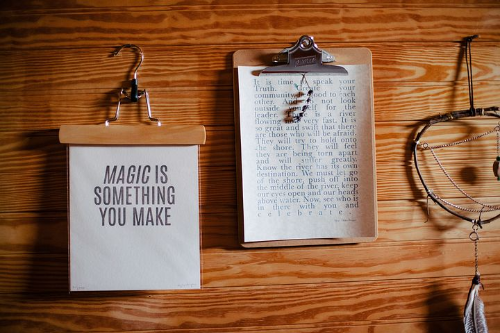 MAGIC IS
SOMETHING
YOU MAKE
It is time to speak your
Truth. your
community. good to each
other. not look
outside self for the
leader. is a river
flowing very fast. It is
so great and swift that there
are those who will be afraid.
They will try to hold onto
the shore. They will feel
they are being torn apart
and will suffer greatly.
Know the river has its own
destination. We must let go
of the shore, push off into
the middle of the river, keep
our eyes open and our heads
above water. Now, see who is
in there with you and
celebrate.